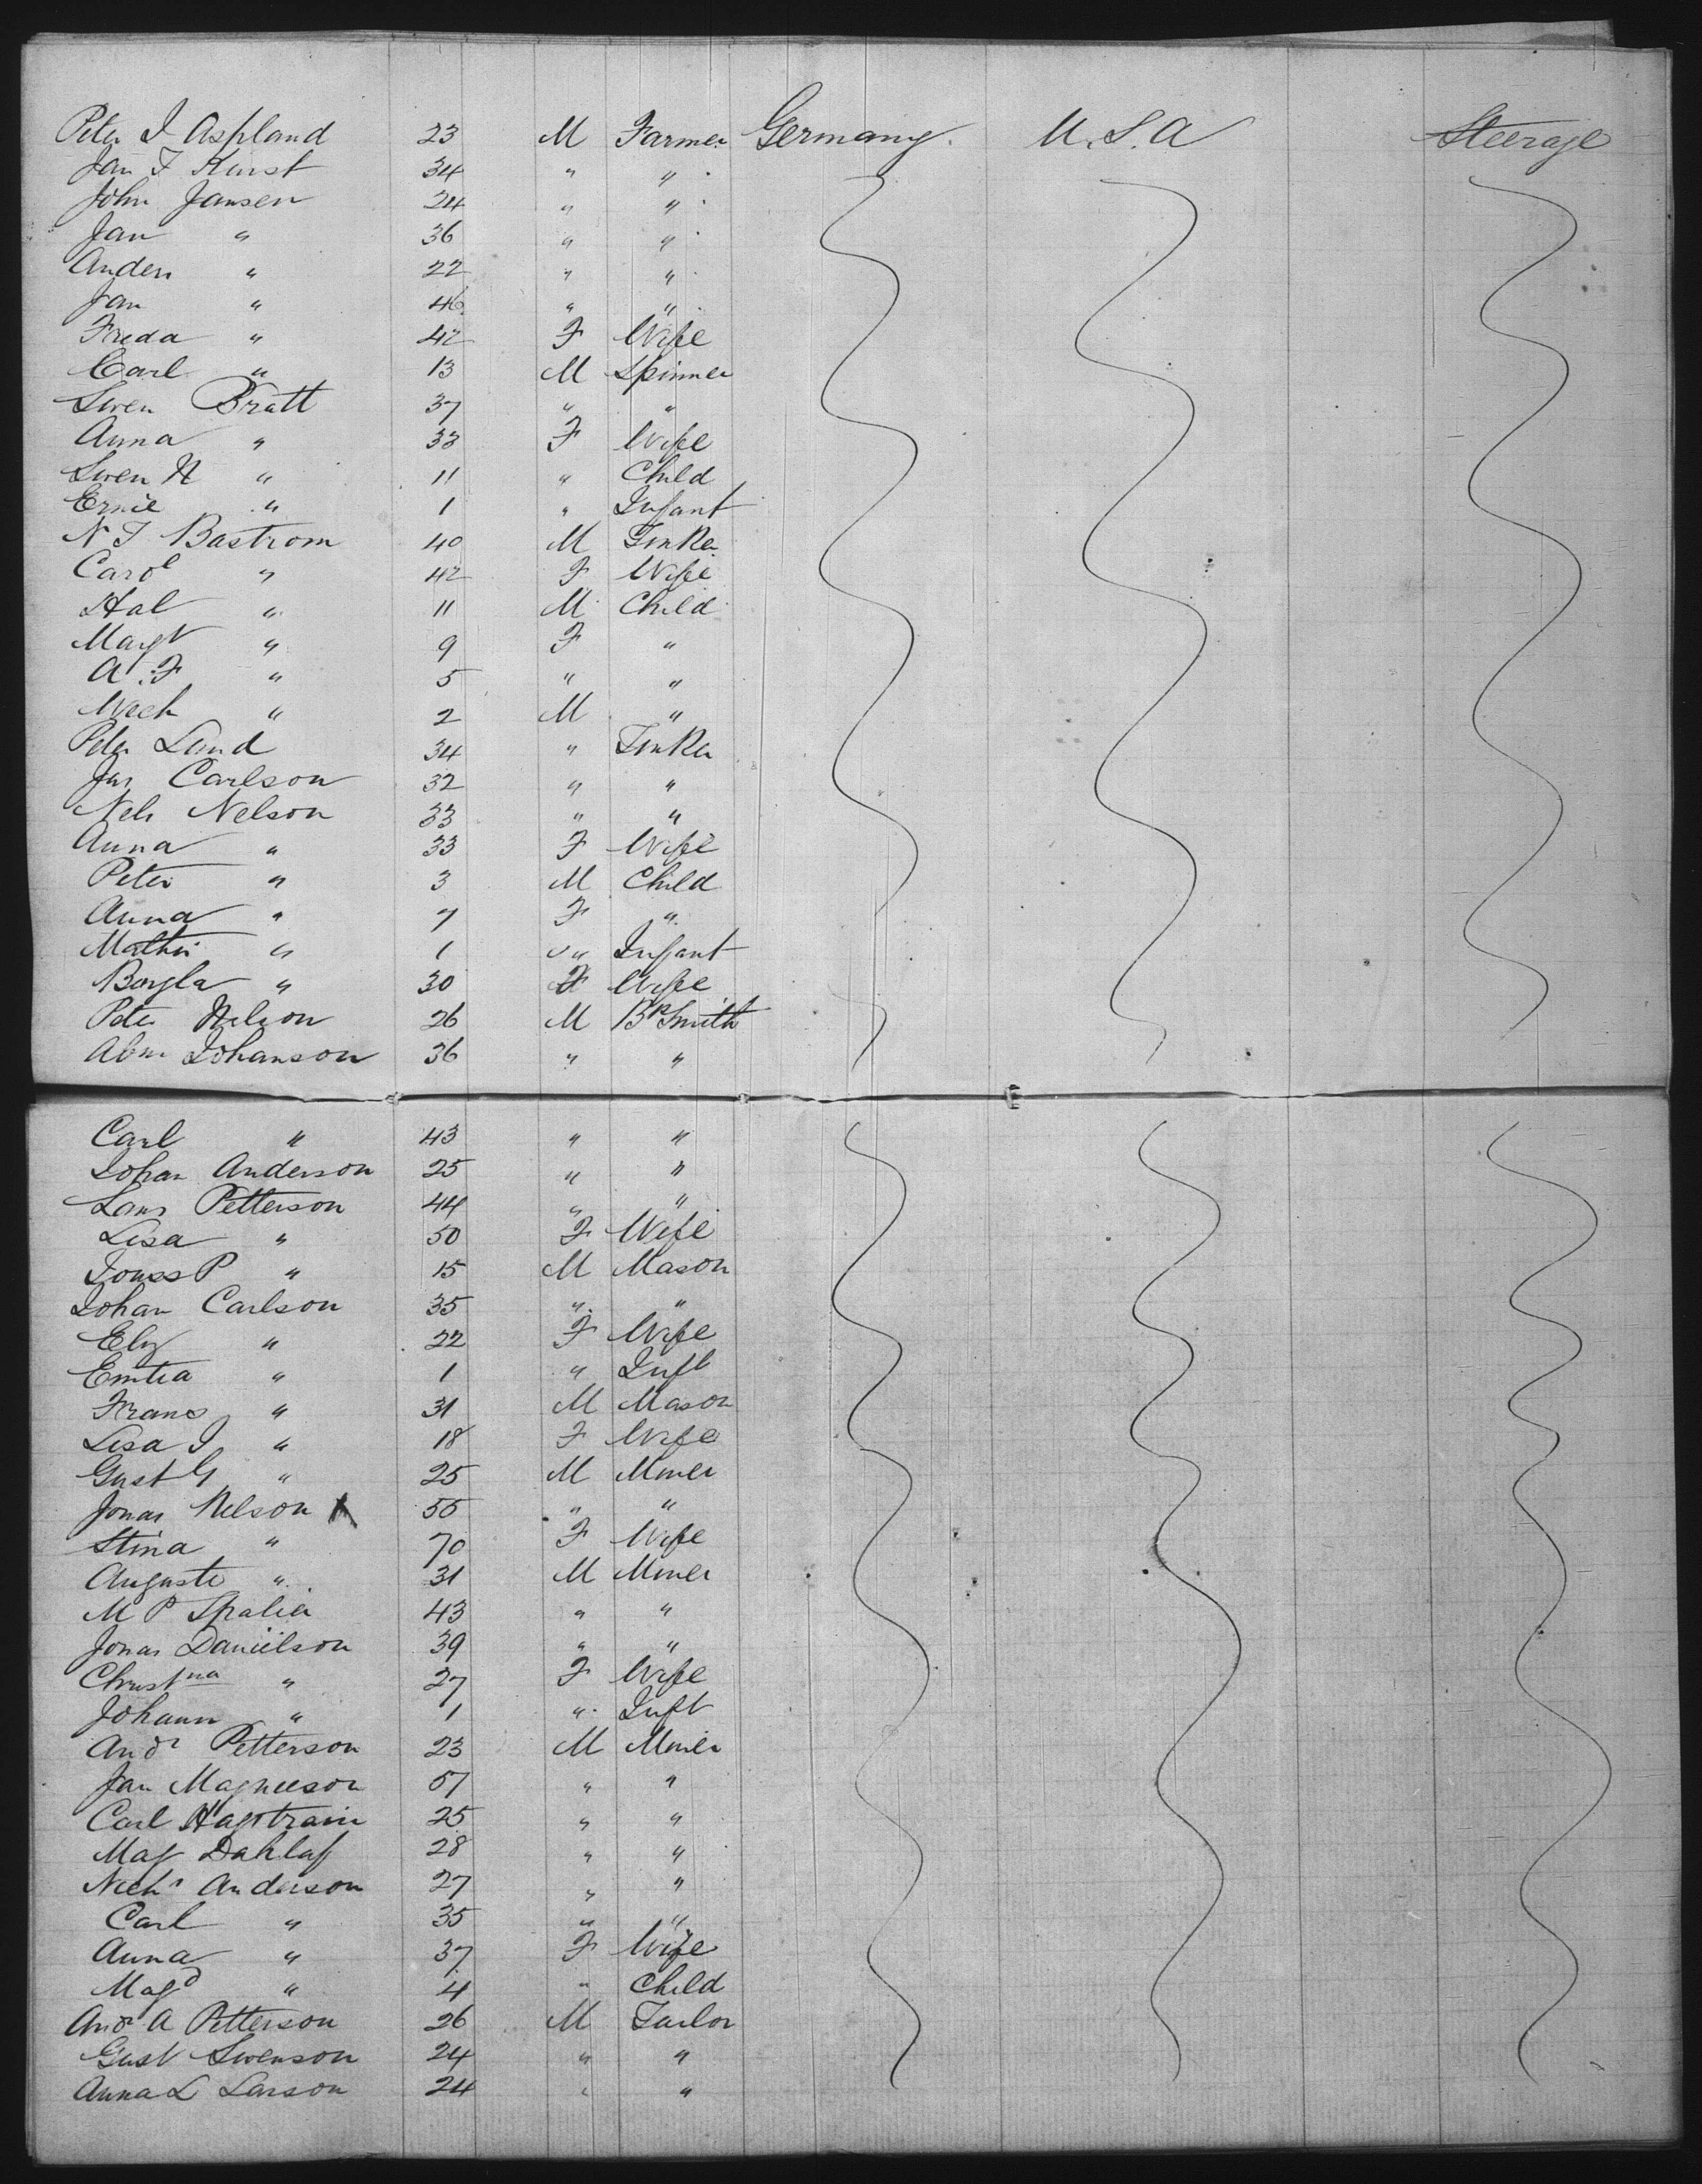 Peter I Aspland 23 M Farmer Germany. U.S.A Steerage
Jan F Kunst 34 " "
John Jansen 24 " "
Jan " 36 " "
Anders " 22 " "
Jan " 46 " "
Freda " 42 F Wife
Carl " 13 M Spinner
Swen Bratt 37 " "
Anna " 33 F Wife
Swen N " 11 " Child
Ernie " 1 " Infant
N I Bastrom 40 M Tinker
Carol " 42 F Wife
Hal " 11 M Child
Margt " 9 F "
A. F " 5 " "
Mich " 2 M "
Peter Lund 34 " Tinker
Jas Carlson 32 " "
Nels Nelson 33 " "
Anna " 33 F Wife
Peter " 3 M Child
Anna " 7 F "
" 1 " Infant
" 30 F Wife
Peter Nelson 26 M Bk Smith
Abm Johanson 36 " "
Carl " 43 " "
Johan Anderson 25 " "
Lars Petterson 44 " "
Lisa " 50 F Wife
P " 15 M Mason
Johan Carlson 35 " "
Elz " 22 F Wife
" 1 " Inft
Frans " 31 M Mason
Lisa I " 18 F Wife
Gust G " 25 M Miner
Jonas Nelson X 55 " "
Stina " 70 F Wife
Auguste " 31 M Miner
M P 43 " "
Jonas Danielson 39 " "
Christna " 27 F Wife
Johann " 1 " Inft
Andr Petterson 23 M Miner
Jan Magneeson 57 " "
Carl Hagstrain 25 " "
Mag 28 " "
Nichs Anderson 27 " "
Carl " 35 " "
Anna " 37 F Wife
Magd " 4 " Child
Andr A Petterson 26 M Tailor
Gust Swenson 24 " "
Anna L Larson 24 " "